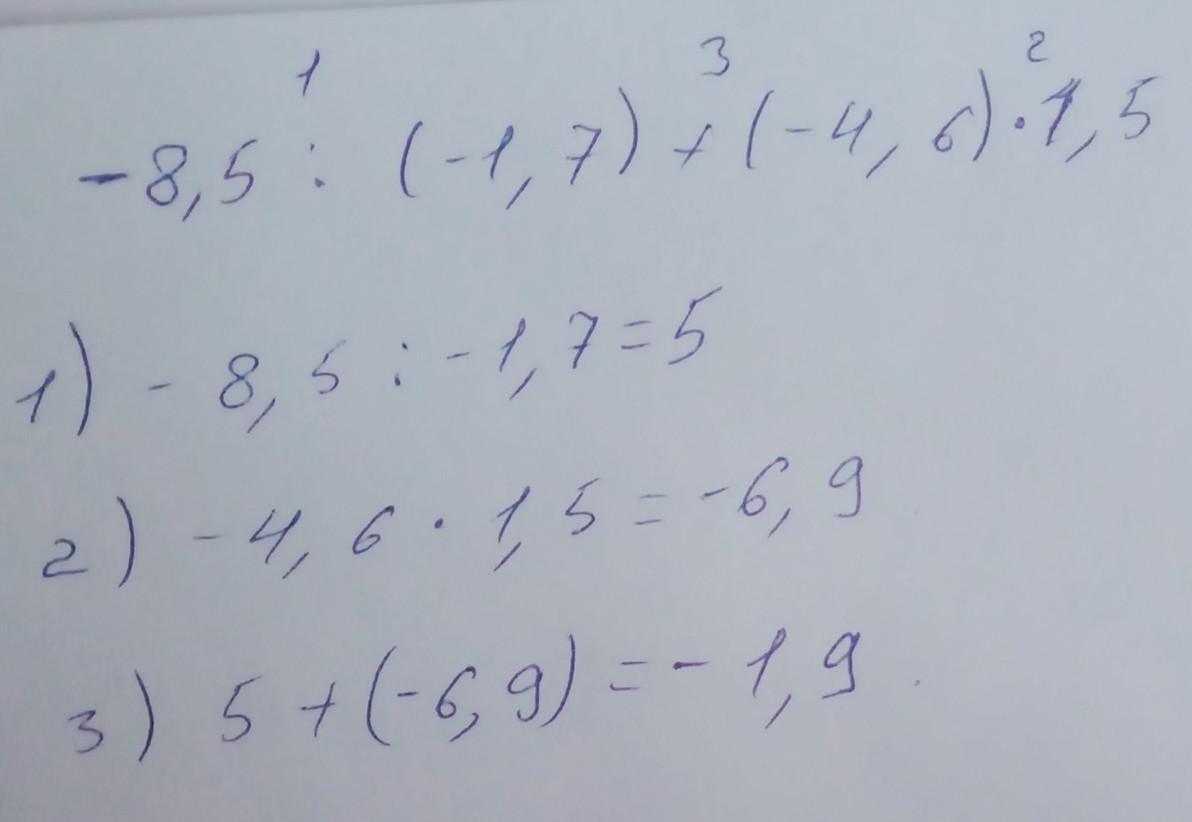 1 3 2
-8,5 : (-1,7) + (-4,6) · 1,5
1) - 8,5 : -1,7 = 5
2) -4,6 · 1,5 = -6,9
3) 5 + (-6,9) = - 1,9